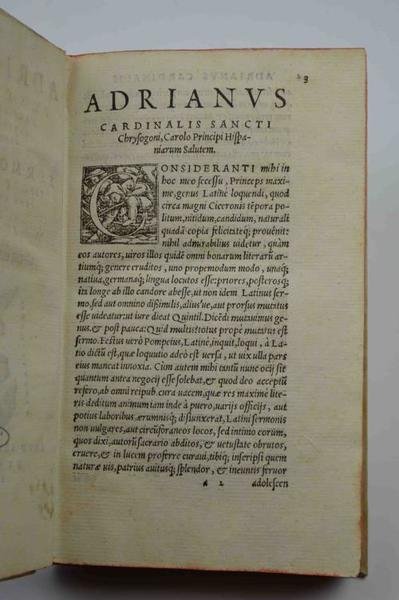 3
ADRIANVS
CARDINALIS SANCTI
Chrysogoni, Carolo Principi Hispa-
niarum Salutem.
CONSIDERANTI mihi in
hoc meo secessu, Princeps maxi-
me, genus Latinè loquendi, quod
circa magni Ciceronis tēpora po-
litum, nitidum, candidum, naturali
quadā copia felicitateq; prouênit:
nihil admirabilius uidetur, quàm
eos autores, uiros illos quidē omni bonarum literarū ar-
tiumq; genere eruditos, uno propemodum modo, unaq;
natiua, germanaq; lingua locutos esse: priores, posterosq;
ita longe ab illo candore abesse, ut non idem Latinus ser-
mo, sed aut omnino dissimilis, alius'ue, aut prorsus mutatus
esse uideatur: ut iure dicat Quintil. Dicēdi mutauimus ge-
nus. & post pauca: Quid multis? totus propè mutatus est
sermo. Festus uerò Pompeius, Latinè, inquit, loqui, à La-
tio dictū est, quæ loquutio adeò est uersa, ut uix ulla pars
eius maneat innoxia. Cùm autem mihi tātū nunc ocij sit
quantum antea negocij esse solebat, & quod deo acceptū
refero, ab omni reipub. cura uacem, quæ res maxime lite-
ris deditum animum iam inde à puero, uarijs officijs, aut
potius laboribus ærumnisq; disiunxerat, Latini sermonis
non uulgares, aut circūforaneos locos, sed intimo eorum,
quos dixi, autorū sacrario abditos, & uetustate obrutos,
eruere, & in lucem proferre curaui, tibiq; inscripsi quem
naturæ uis, patrius auitusq; splendor, & ineuntis feruor
a 2 adolescen